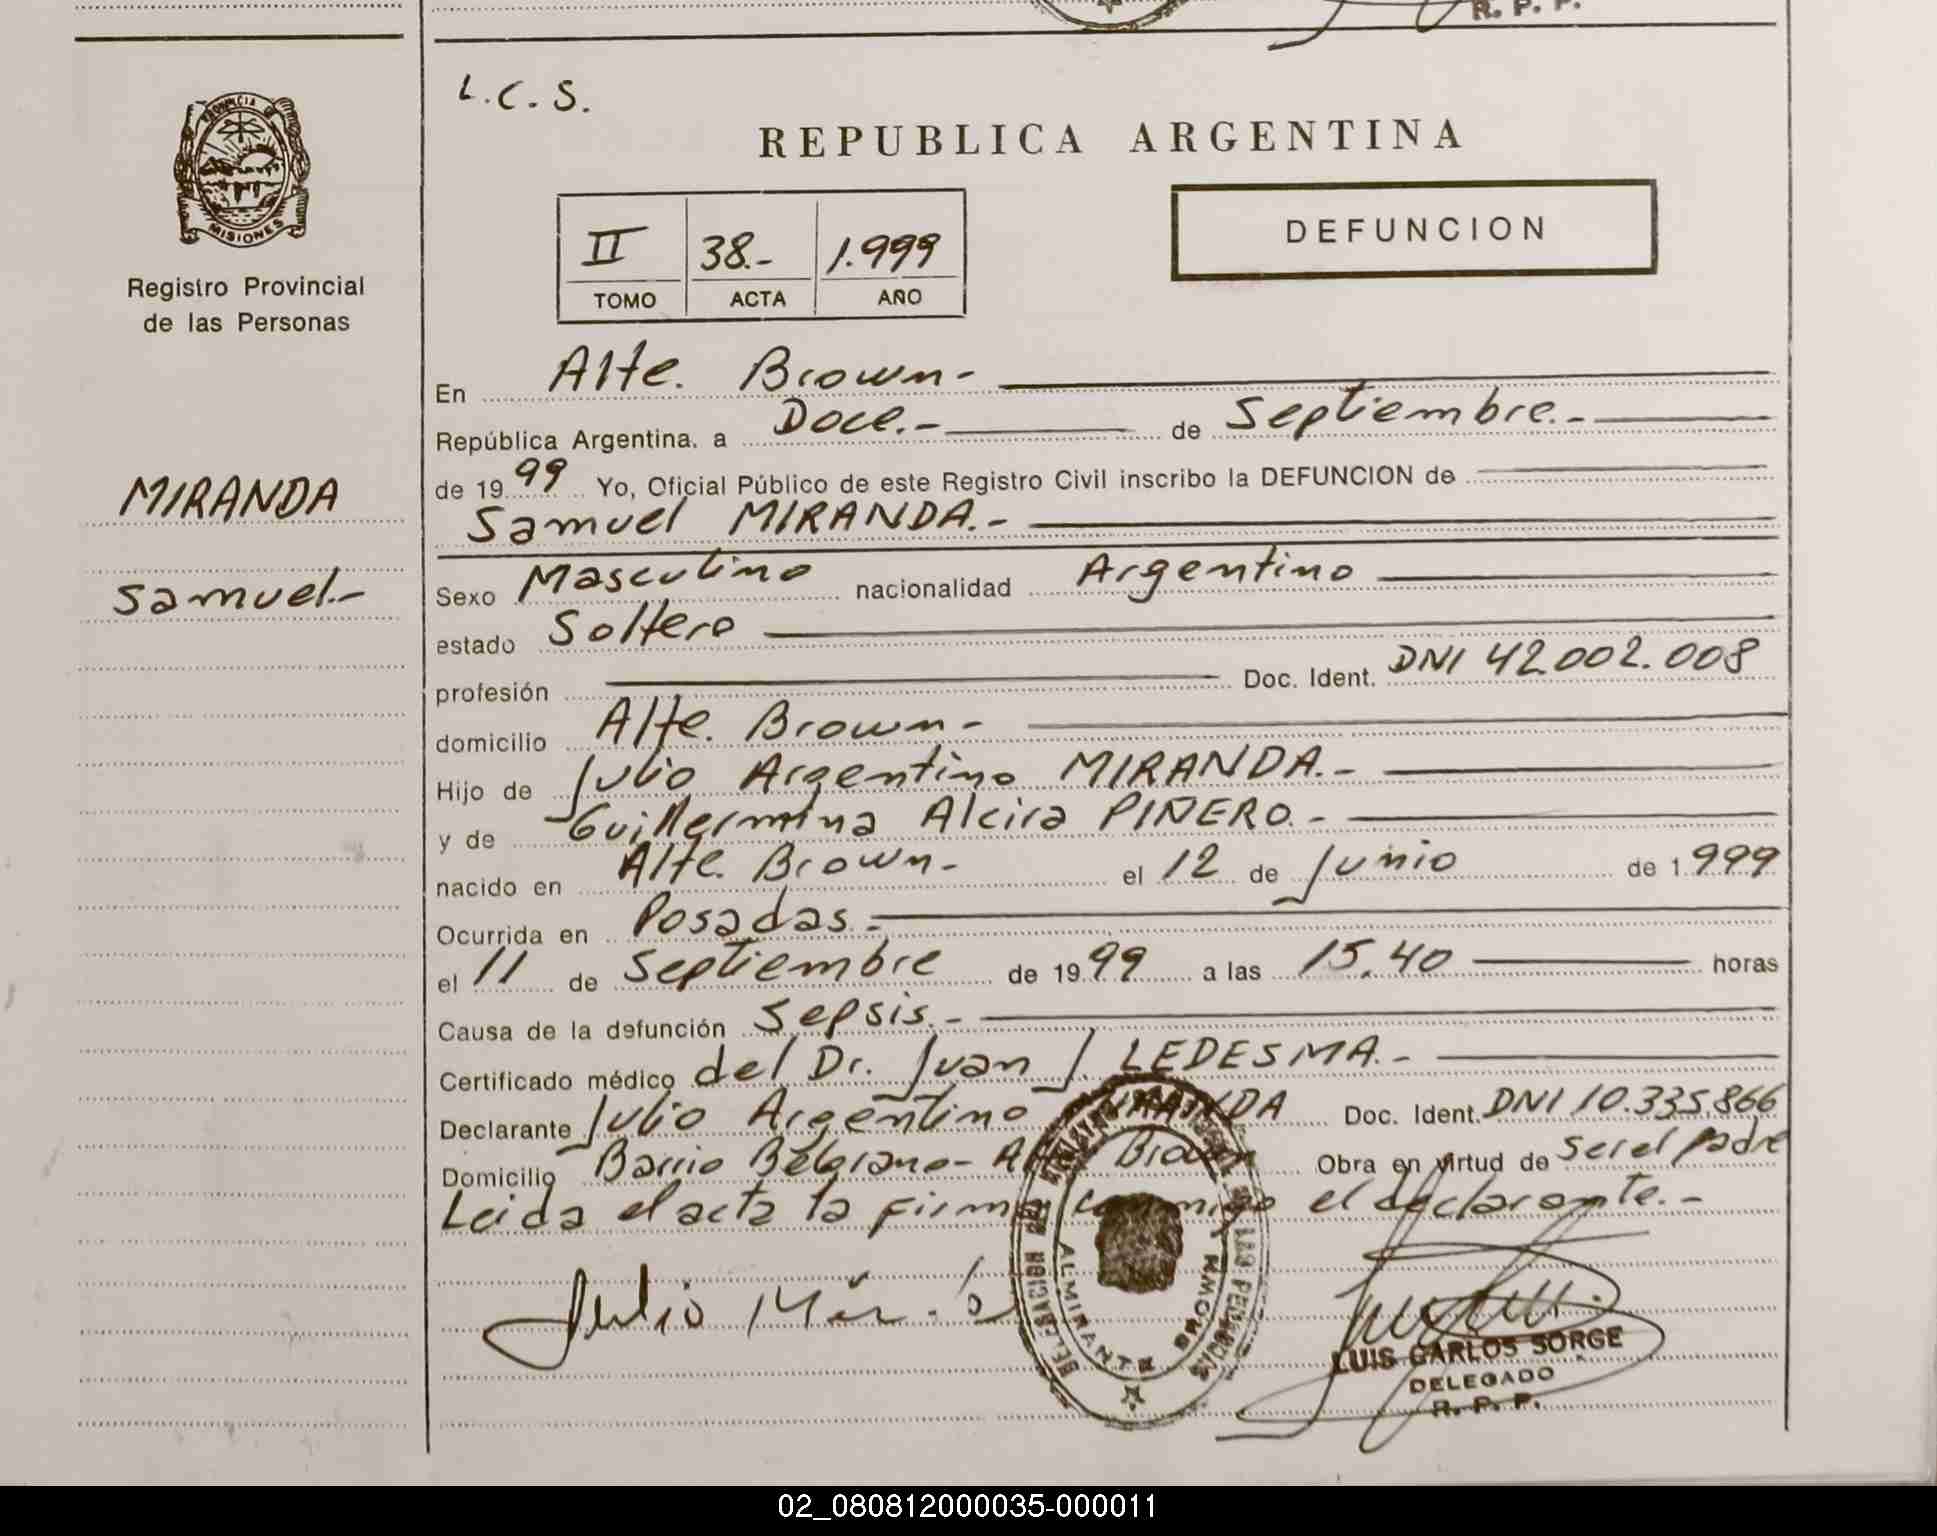 R. P. P.
L.C.S.
REPUBLICA ARGENTINA
PROVINCIA DE
MISIONES
Registro Provincial
de las Personas
II 38.- 1.999
TOMO ACTA AÑO
DEFUNCION
MIRANDA
Samuel.-
En Alte. Brown-
República Argentina. a Doce.- de Septiembre.-
de 1999 Yo, Oficial Público de este Registro Civil inscribo la DEFUNCION de
Samuel MIRANDA.-
Sexo Masculino nacionalidad Argentino
estado Soltero
profesión Doc. Ident. DNI 42.002.008
domicilio Alte. Brown-
Hijo de Julio Argentino MIRANDA.-
y de Guillermina Alcira PIÑERO.-
nacido en Alte. Brown- el 12 de Junio de 1999
Ocurrida en Posadas.-
el 11 de Septiembre de 1999 a las 15,40 horas
Causa de la defunción Sepsis.-
Certificado médico del Dr. Juan J. LEDESMA.-
Declarante Julio Argentino MIRANDA Doc. Ident. DNI 10.335.866
Domicilio Barrio Belgrano- Alte. Brown Obra en virtud de Ser el padre
Leida el acta la firma conmigo el declarante.-
Julio
DELEGACION DEL
LAS PERSONAS
ALMIRANTE BROWN
LUIS CARLOS SORGE
DELEGADO
R. P. P.
02_080812000035-000011